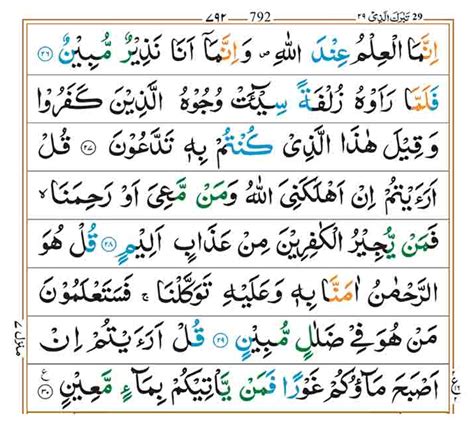 تَبٰرَكَ الَّذِىْ ٢٩ 792 ٧٩٢ 29
اِنَّمَا الْعِلْمُ عِنْدَ اللّٰهِ ۪ وَاِنَّمَاۤ اَنَا نَذِيْرٌ مُّبِيْنٌ ﴿٢٦﴾
فَلَمَّا رَاَوْهُ زُلْفَةً سِيْٓـَٔتْ وُجُوْهُ الَّذِيْنَ كَفَرُوْا
وَقِيْلَ هٰذَا الَّذِىْ كُنْتُمْ بِهٖ تَدَّعُوْنَ ﴿٢٧﴾ قُلْ
اَرَءَيْتُمْ اِنْ اَهْلَكَنِىَ اللّٰهُ وَمَنْ مَّعِىَ اَوْ رَحِمَنَا ۙ
فَمَنْ يُّجِيْرُ الْكٰفِرِيْنَ مِنْ عَذَابٍ اَلِيْمٍ ﴿٢٨﴾ قُلْ هُوَ
الرَّحْمٰنُ اٰمَنَّا بِهٖ وَعَلَيْهِ تَوَكَّلْنَا ۚ فَسَتَعْلَمُوْنَ
مَنْ هُوَ فِىْ ضَلٰلٍ مُّبِيْنٍ ﴿٢٩﴾ قُلْ اَرَءَيْتُمْ اِنْ
اَصْبَحَ مَآؤُكُمْ غَوْرًا فَمَنْ يَّاْتِيْكُمْ بِمَآءٍ مَّعِيْنٍ ﴿٣٠﴾
منزل ٧